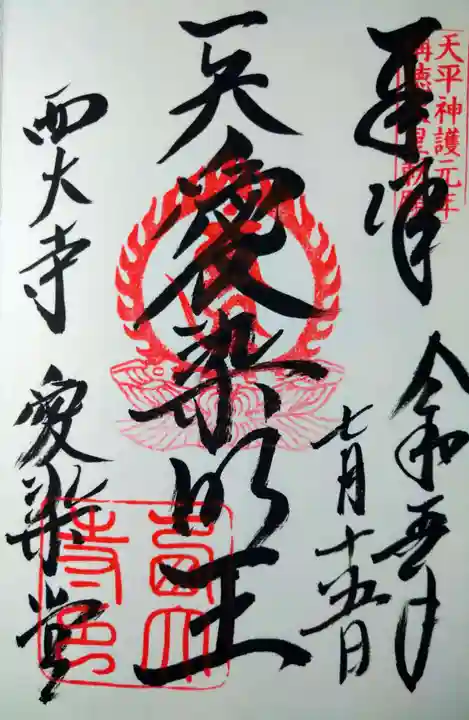 天平神護元年
稱徳天皇勅願
奉拝
令和五年
七月十五日
愛染明王
西大寺
愛染堂